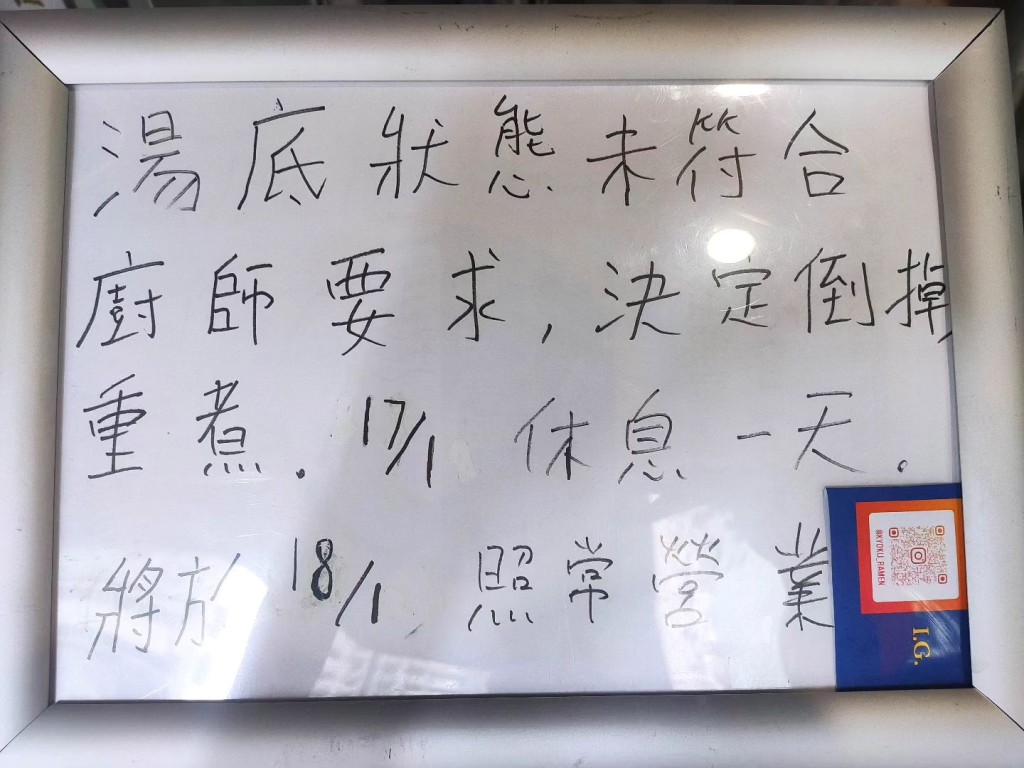 湯底狀態未符合
廚師要求,決定倒掉
重煮. 17/1 休息一天.
將於 18/1 照常營業
@KYOKU.RAMEN
I.G.